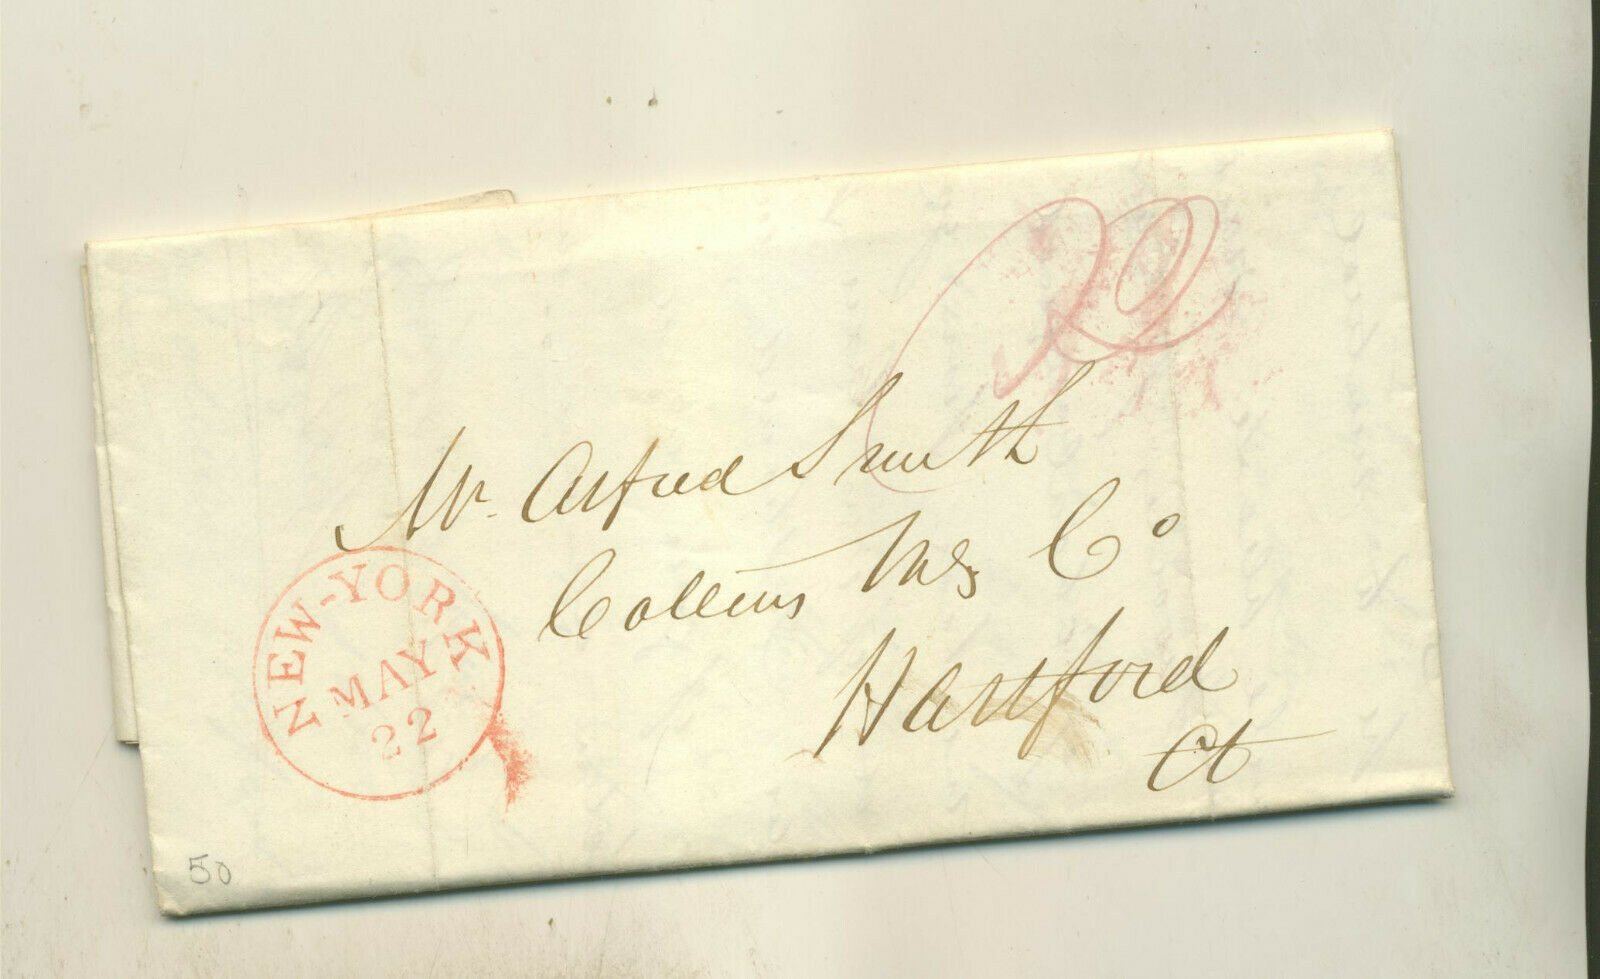 Mr. Alfred Smith
Collins Mfg Co
Hartford
Ct
NEW-YORK
MAY
22
50